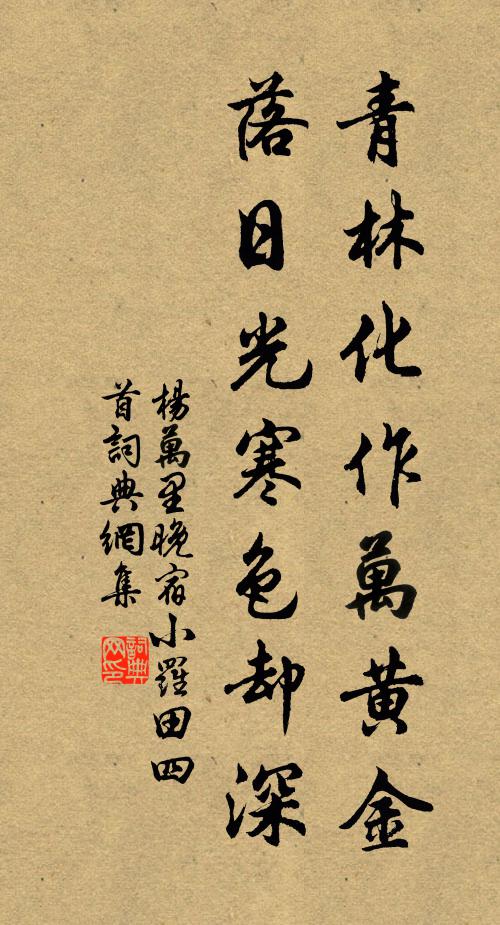 青林化作萬黃金
落日光寒色却深
楊萬里晚宿小羅田四
首詞典網集
詞典
网印